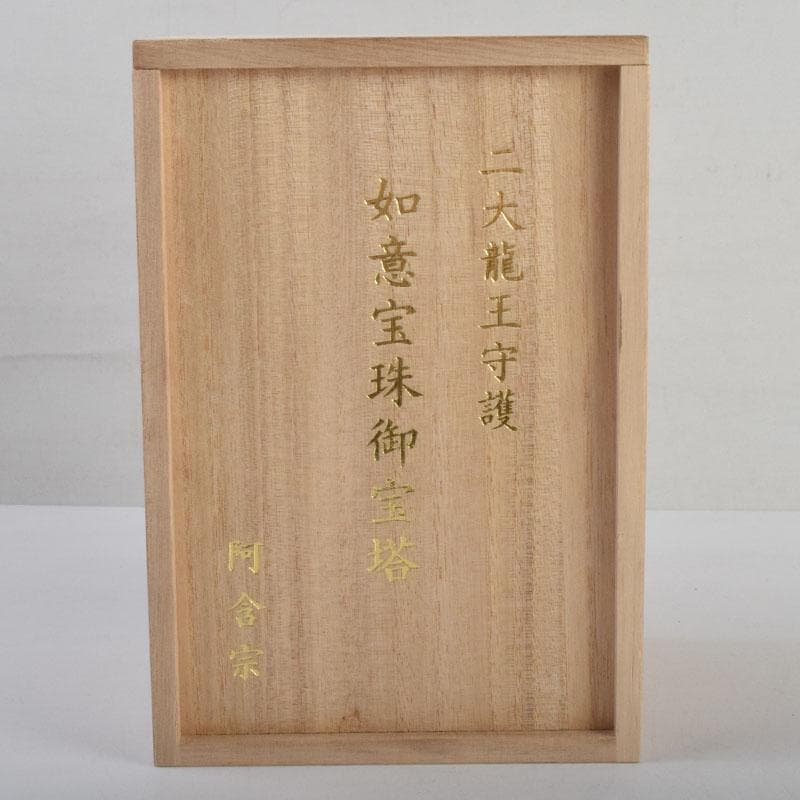 二大龍王守護
如意宝珠御宝塔
阿含宗